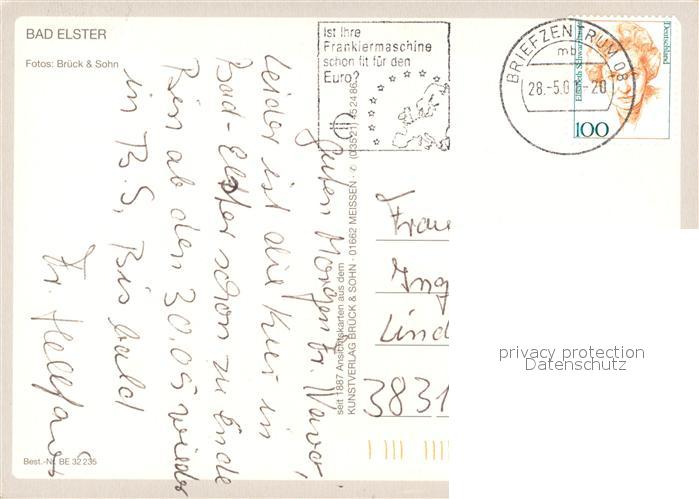 BAD ELSTER
Fotos: Brück & Sohn
Ist Ihre
Frankiermaschine
schon fit für den
Euro?
BRIEFZENTRUM 08
mb
28.-5.0 -20
Deutschland
Elisabeth Schwarzhaupt
100
Guten Morgen Fr.
leider ist die Kur in
Bad-Elster schon zu Ende
Bin ab den 30.05 wieder
in B.S, Bis bald
Fr.
seit 1887 Ansichtskarten aus dem
KUNSTVERLAG BRÜCK & SOHN · 01662 MEISSEN · ✆ (03521) 45 24 86
Frau
Ing
Lind
3831
privacy protection
Datenschutz
Best.-Nr. BE 32 235